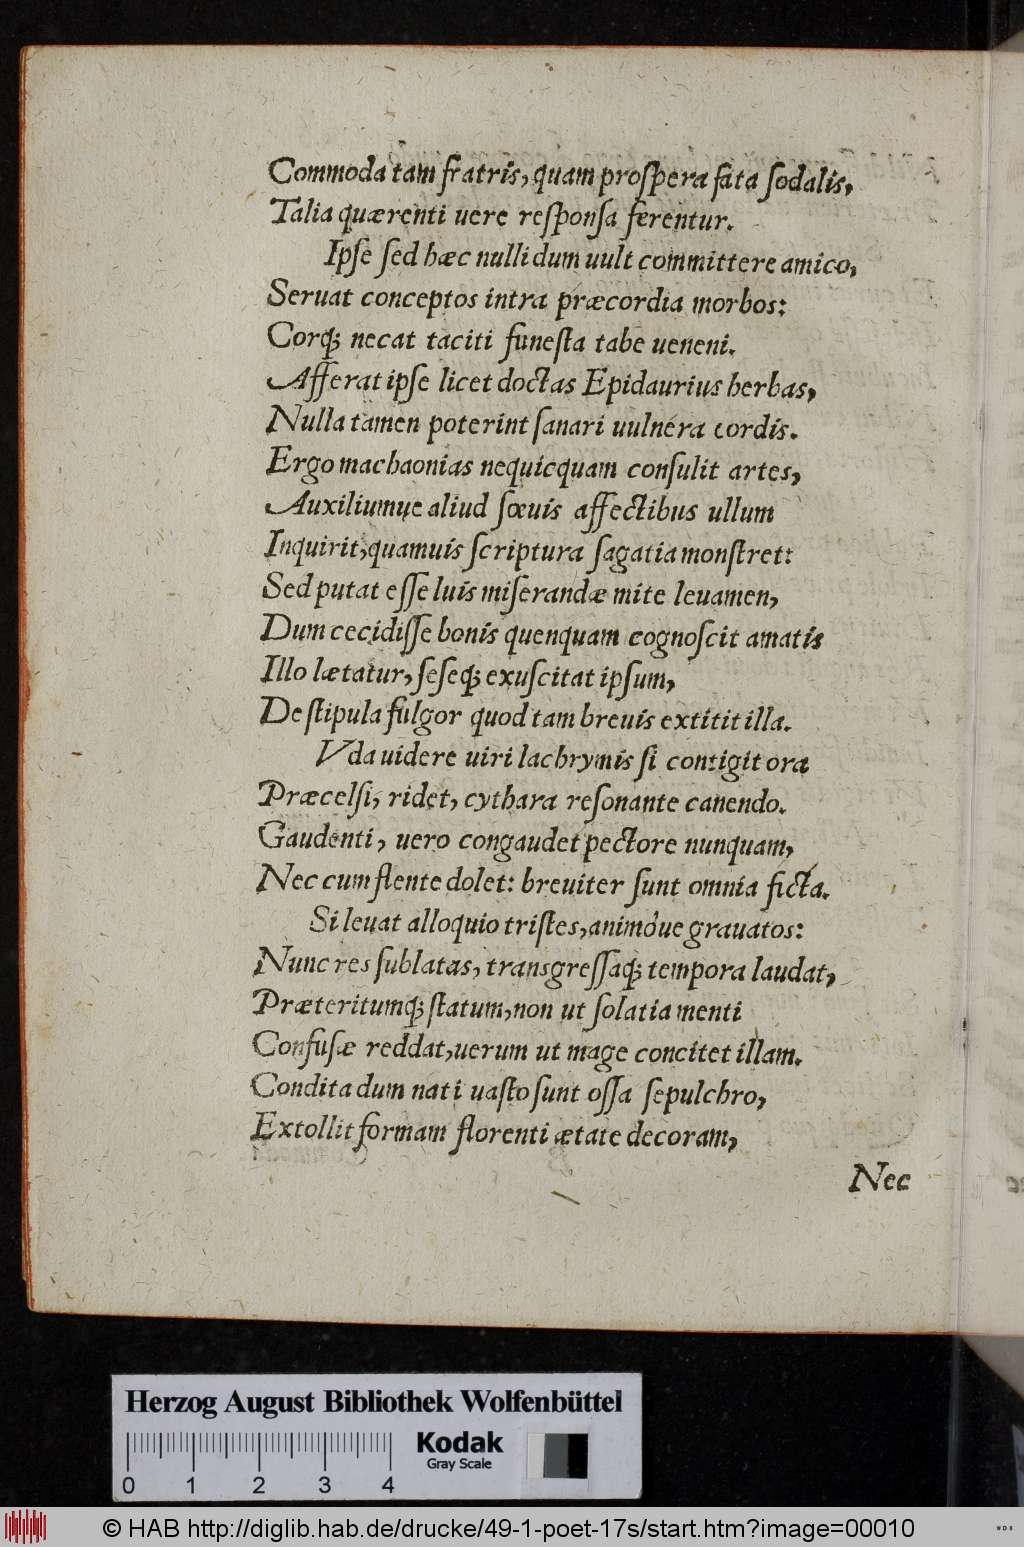 Commoda tam fratris, quam proſpera fata ſodalis,
Talia quærenti uere reſponſa ferentur.
Ipſe ſed hæc nulli dum uult committere amico,
Seruat conceptos intra præcordia morbos:
Corq́; necat taciti funeſta tabe ueneni.
Afferat ipſe licet doctas Epidaurius herbas,
Nulla tamen poterint ſanari uulnera cordis.
Ergo machaonias nequicquam conſulit artes,
Auxiliumue aliud ſœuis affectibus ullum
Inquirit, quamuis ſcriptura ſagatia monſtret:
Sed putat eſſe luis miſerandæ mite leuamen,
Dum cecidiſſe bonis quenquam cognoſcit amatis
Illo lætatur, ſeſeq́; exuſcitat ipſum,
De ſtipula fulgor quod tam breuis extitit illa.
Vda uidere uiri lachrymis ſi contigit ora
Præcelſi, ridet, cythara reſonante canendo.
Gaudenti, uero congaudet pectore nunquam,
Nec cum flente dolet: breuiter ſunt omnia ficta.
Si leuat alloquio triſtes, animóue grauatos:
Nunc res ſublatas, transgreſſaq́; tempora laudat,
Præteritumq́; ſtatum, non ut ſolatia menti
Confuſæ reddat, uerum ut mage concitet illam.
Condita dum nati uaſto ſunt oſſa ſepulchro,
Extollit formam florenti ætate decoram,
Nec
Herzog August Bibliothek Wolfenbüttel
Kodak
Gray Scale
0 1 2 3 4
© HAB http://diglib.hab.de/drucke/49-1-poet-17s/start.htm?image=00010